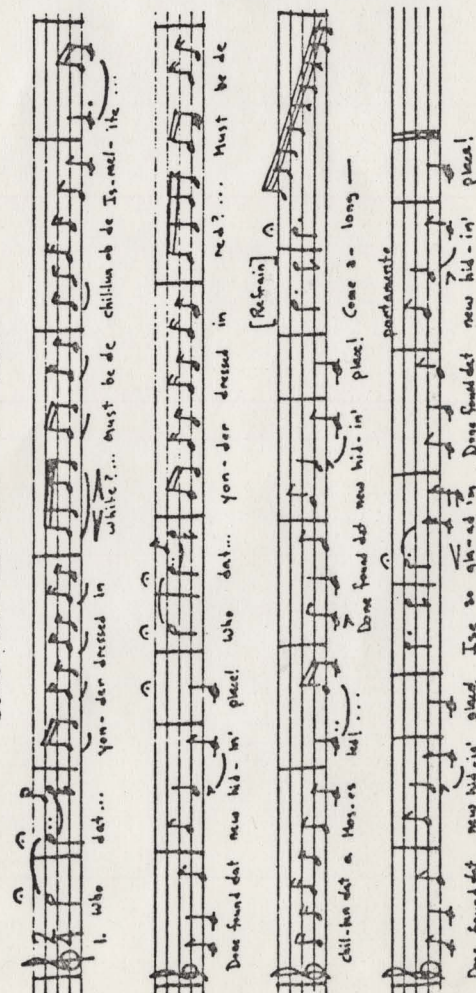 1. Who dat... yon-der dressed in white?... Must be de chil-lun ob de Is-mel-ite...
Done found dat new hid-in' place! Who dat... yon-der dressed in red?... Must be de
[Refrain]
chil-lun dat a Mos-es led!... Done found dat new hid-in' place! Come a-long—
portamento
Done found dat new hid-in' place! I'se so gla-ad I'm Done found dat new hid-in' place!